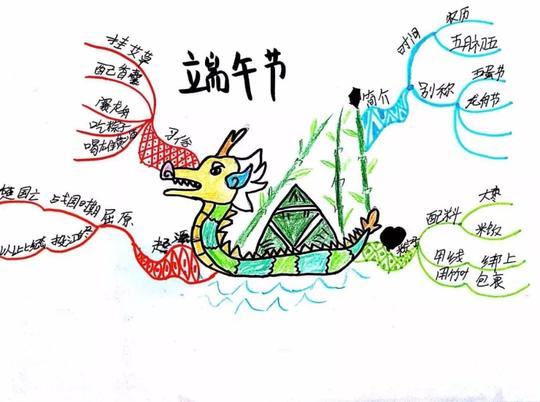 端午节
挂艾草
配香囊
赛龙舟
吃粽子
喝雄黄酒
习俗
简介
时间
农历
五月初五
别称
龙舟节
起源
屈原
战国时期
楚国亡
配料
大枣
用线 绑上
用竹叶 包裹